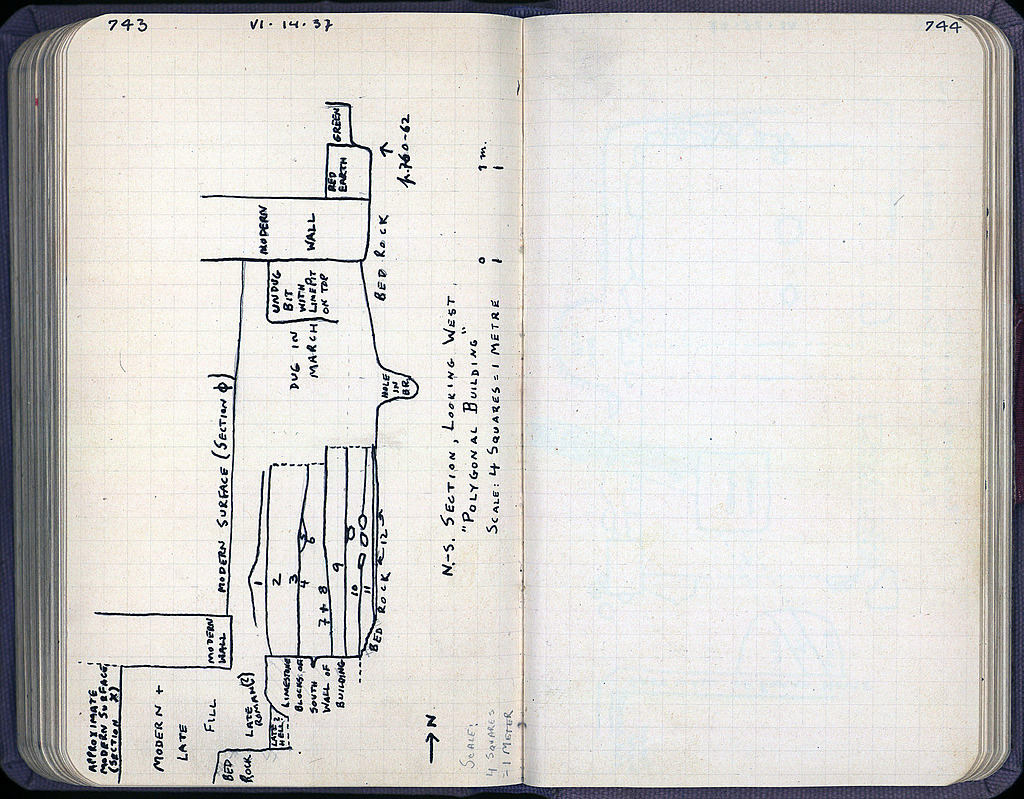 743
VI · 14 · 37
744
APPROXIMATE
MODERN SURFACE
(SECTION X)
MODERN +
LATE
FILL
BED
ROCK
LATE
ROMAN(?)
LATE
HELL?
MODERN
WALL
LIMESTONE
BLOCKS OF
SOUTH
WALL OF
BUILDING
MODERN SURFACE (SECTION Φ)
1
2
3
4
5
6
7 + 8
9
10
11
12
BED ROCK
DUG IN
MARCH
UNDUG
BIT
WITH
LIME PIT
ON TOP
HOLE
IN
BR.
MODERN
WALL
BED ROCK
RED
EARTH
GREEN
p. 760-62
→ N
N.-S. SECTION, LOOKING WEST,
"POLYGONAL BUILDING"
SCALE: 4 SQUARES = 1 METRE
0
1 m.
SCALE:
4 SQUARES
= 1 METER